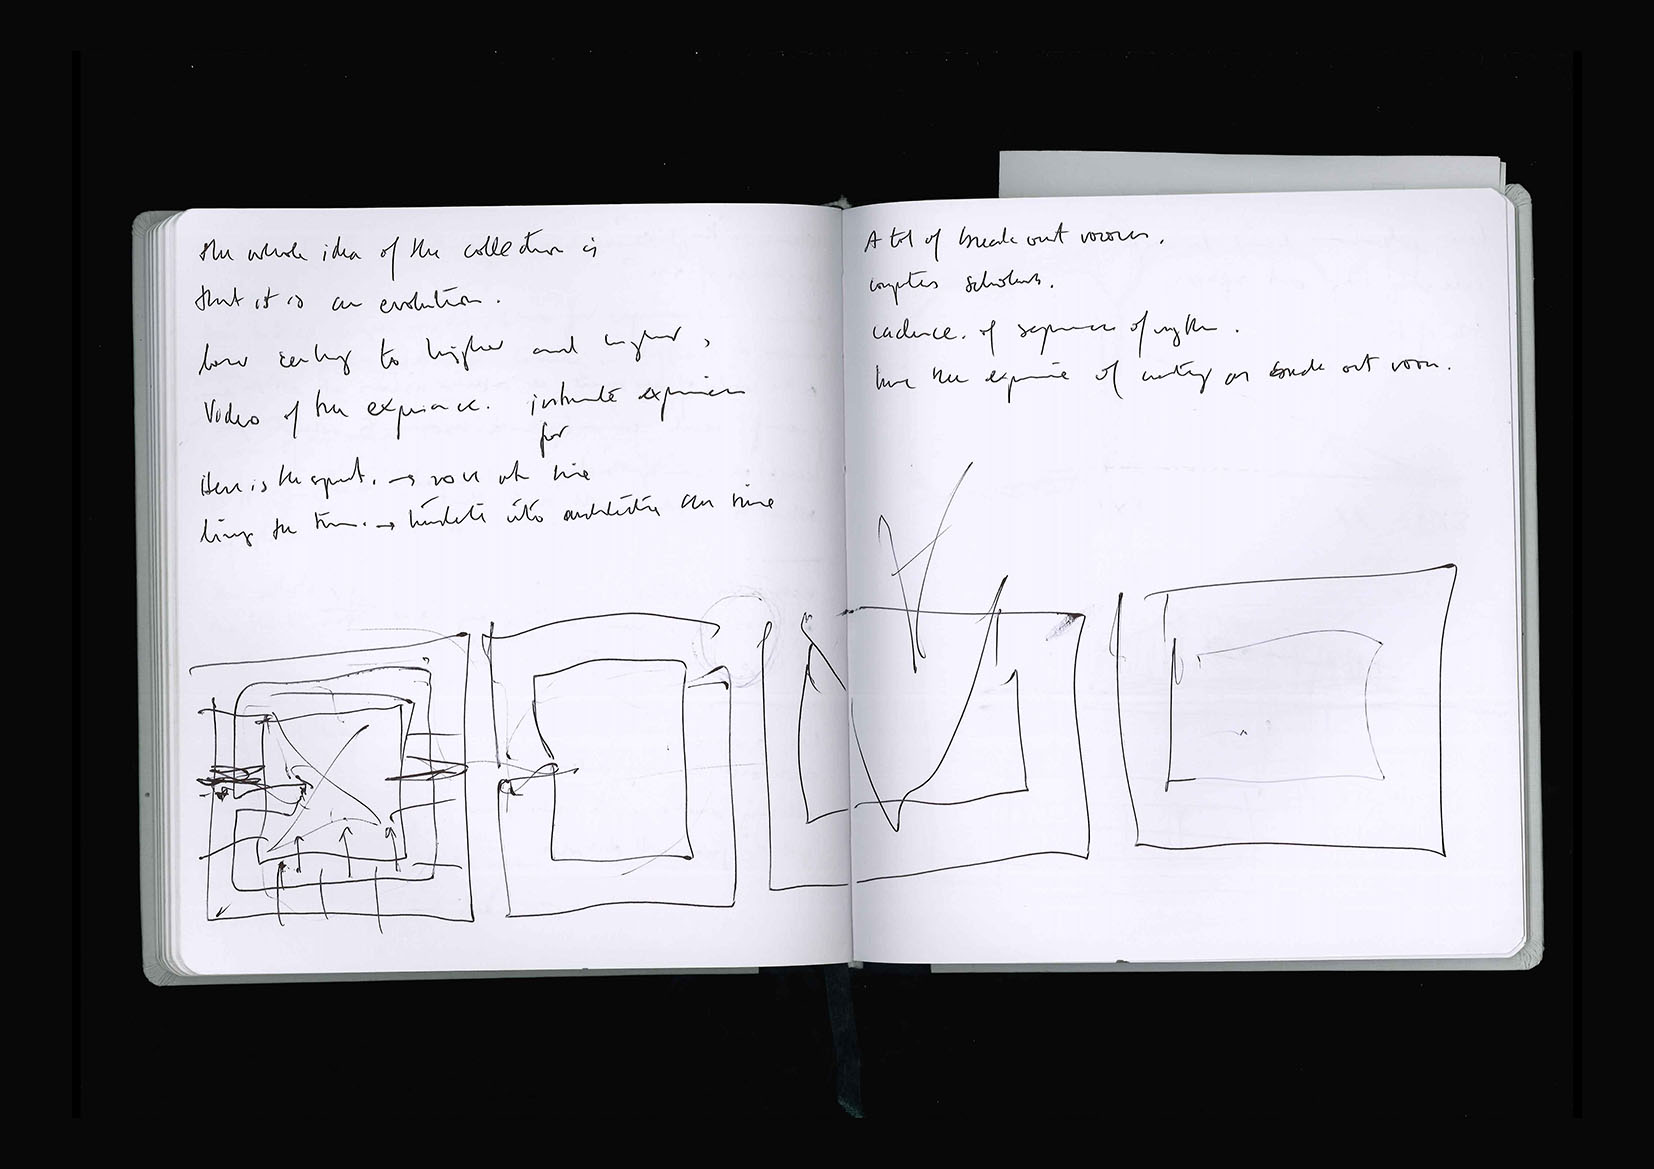 the whole idea of the collection is
that it is an evolution.
low ceiling to higher and higher,
Video of the experience. intimate experience
for
Here is the
→ translate into architecture
A lot of break out rooms.
computer
cadence. of sequence of rythm.
have the experience of meeting or break out room.